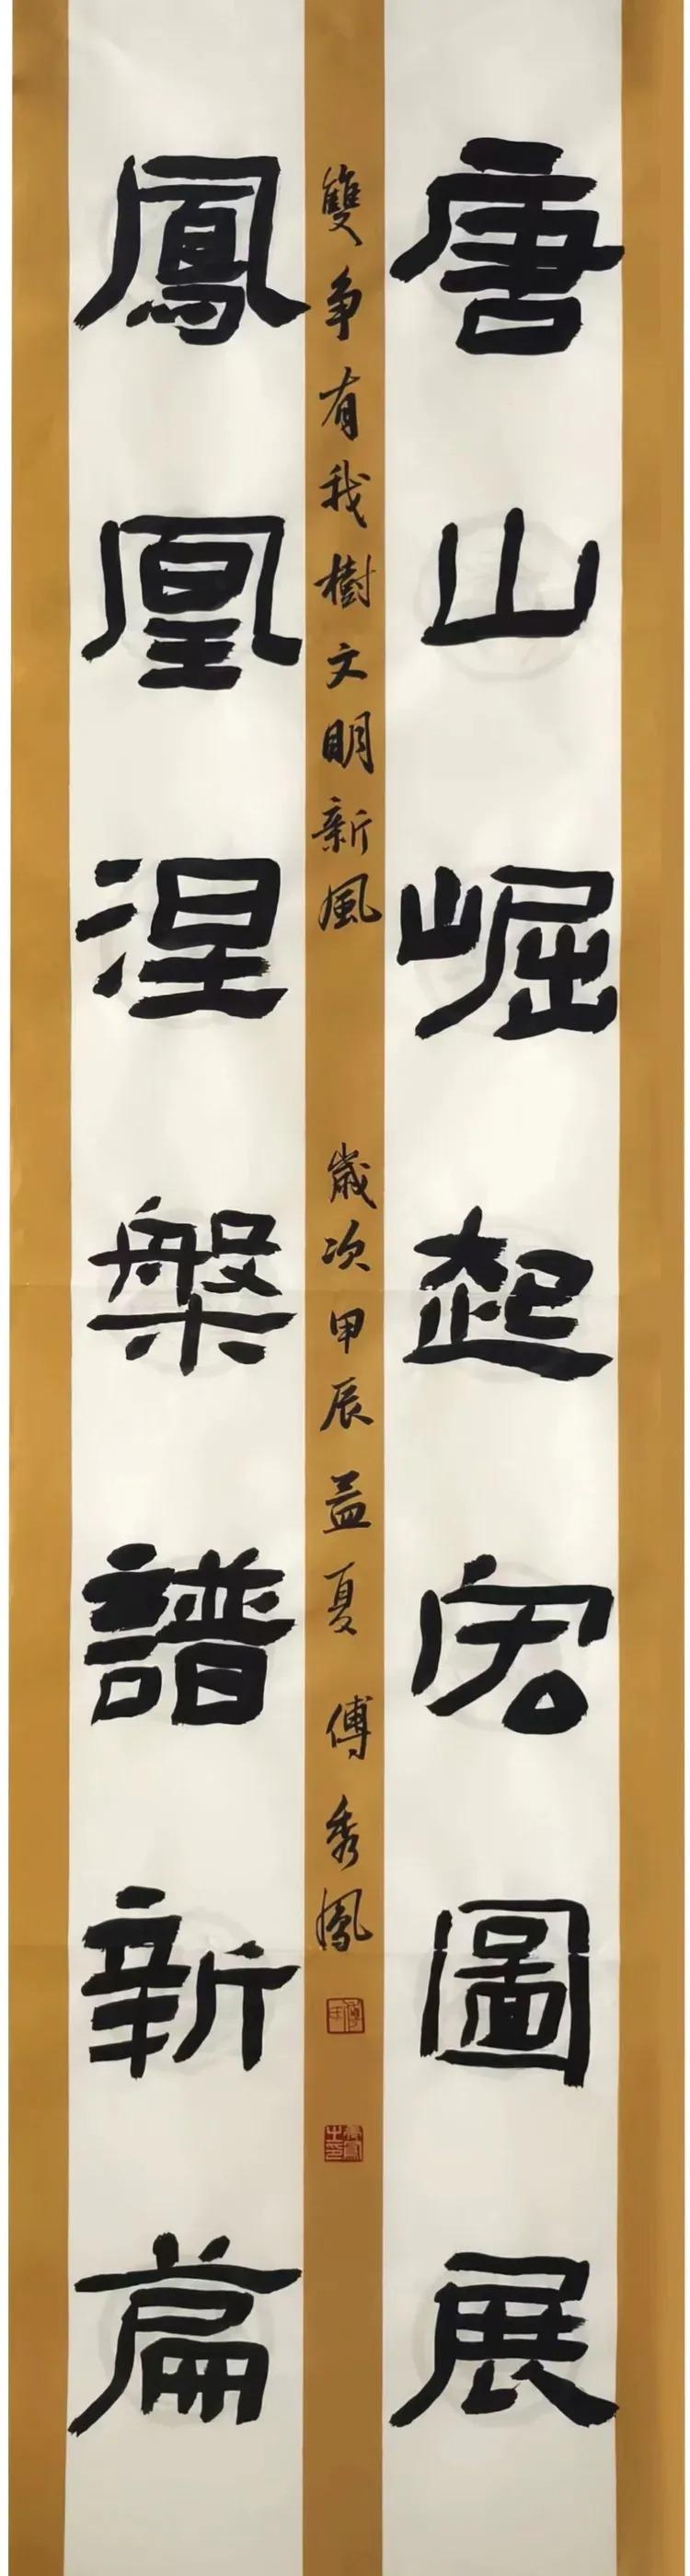 唐山崛起宏圖展
雙争有我樹文明新風 歲次甲辰孟夏 傅秀鳳
傅氏
秀鳳之印
鳳凰涅槃譜新篇